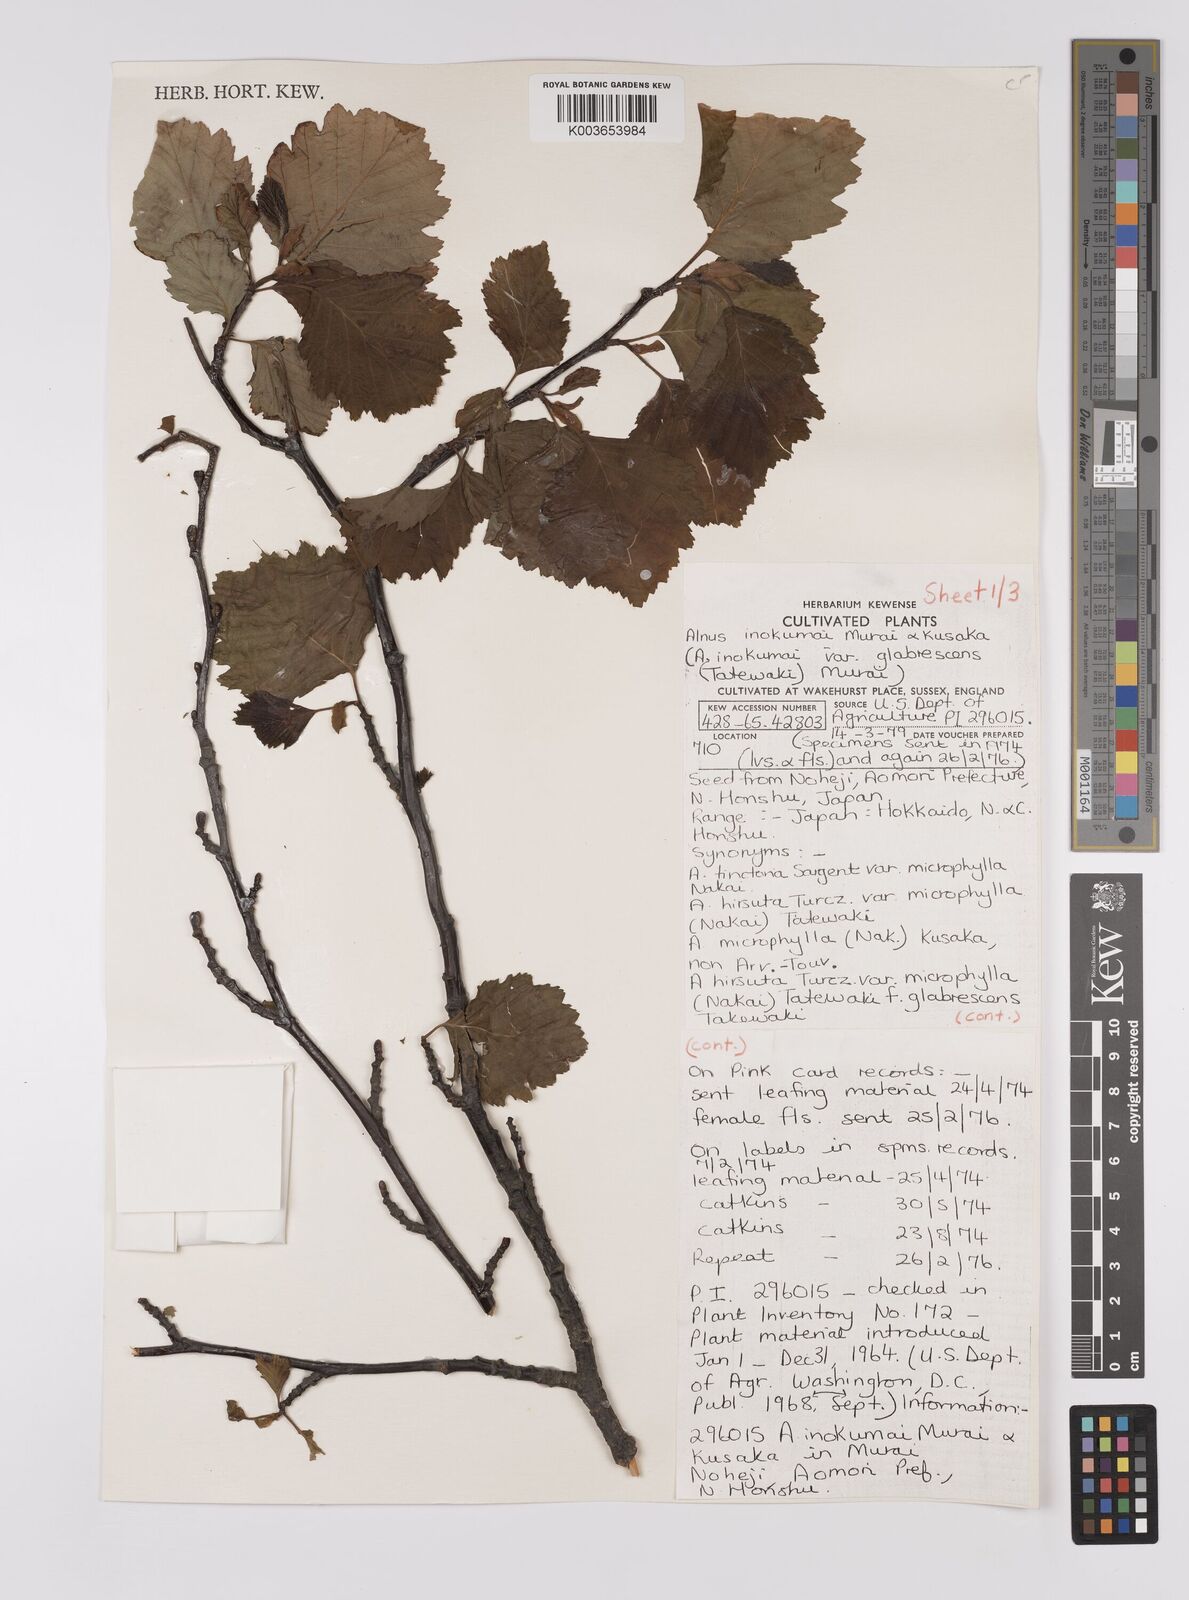 HERB. HORT. KEW.
ROYAL BOTANIC GARDENS KEW
K003653984
Sheet 1/3
HERBARIUM KEWENSE
CULTIVATED PLANTS
Alnus inokumai Murai & Kusaka
(A. inokumai var. glabrescens
(Tatewaki) Murai)
CULTIVATED AT WAKEHURST PLACE, SUSSEX, ENGLAND
KEW ACCESSION NUMBER
428-65.42803
SOURCE U.S. Dept. of
Agriculture PI 296015.
LOCATION
710
14-3-79 DATE VOUCHER PREPARED
(Specimens sent in 1974
(lvs. & fls.) and again 26/2/76.)
Seed from Noheji, Aomori Prefecture,
N. Honshu, Japan
Range :- Japan : Hokkaido, N. & C.
Honshu.
Synonyms : -
A. tinctoria Sargent var. microphylla
Nakai.
A. hirsuta Turcz. var. microphylla
(Nakai) Tatewaki
A microphylla (Nak.) Kusaka,
non Arv.-Touv.
A hirsuta Turcz. var. microphylla
(Nakai) Tatewaki f. glabrescens
Takewaki
(cont.)
(cont.)
On Pink card records: -
sent leafing material 24/4/74
female fls. sent 25/2/76.
On labels in spms. records.
7/2/74
leafing material - 25/4/74.
catkins - 30/5/74
catkins - 23/8/74
Repeat - 26/2/76.
P.I. 296015 - checked in
Plant Inventory No. 172 -
Plant material introduced
Jan 1 - Dec 31, 1964. (U.S. Dept.
of Agr. Washington, D.C.,
Publ. 1968, Sept.) Information:-
296015 A. inokumai Murai &
Kusaka in Murai
Noheji, Aomori Pref.,
N. Honshu.
inches
centimeters
Density
Don Williams
M001164
Royal Botanic Gardens
Kew
copyright reserved
0 1 2 3 4 5 6 7 8 9 10
cm